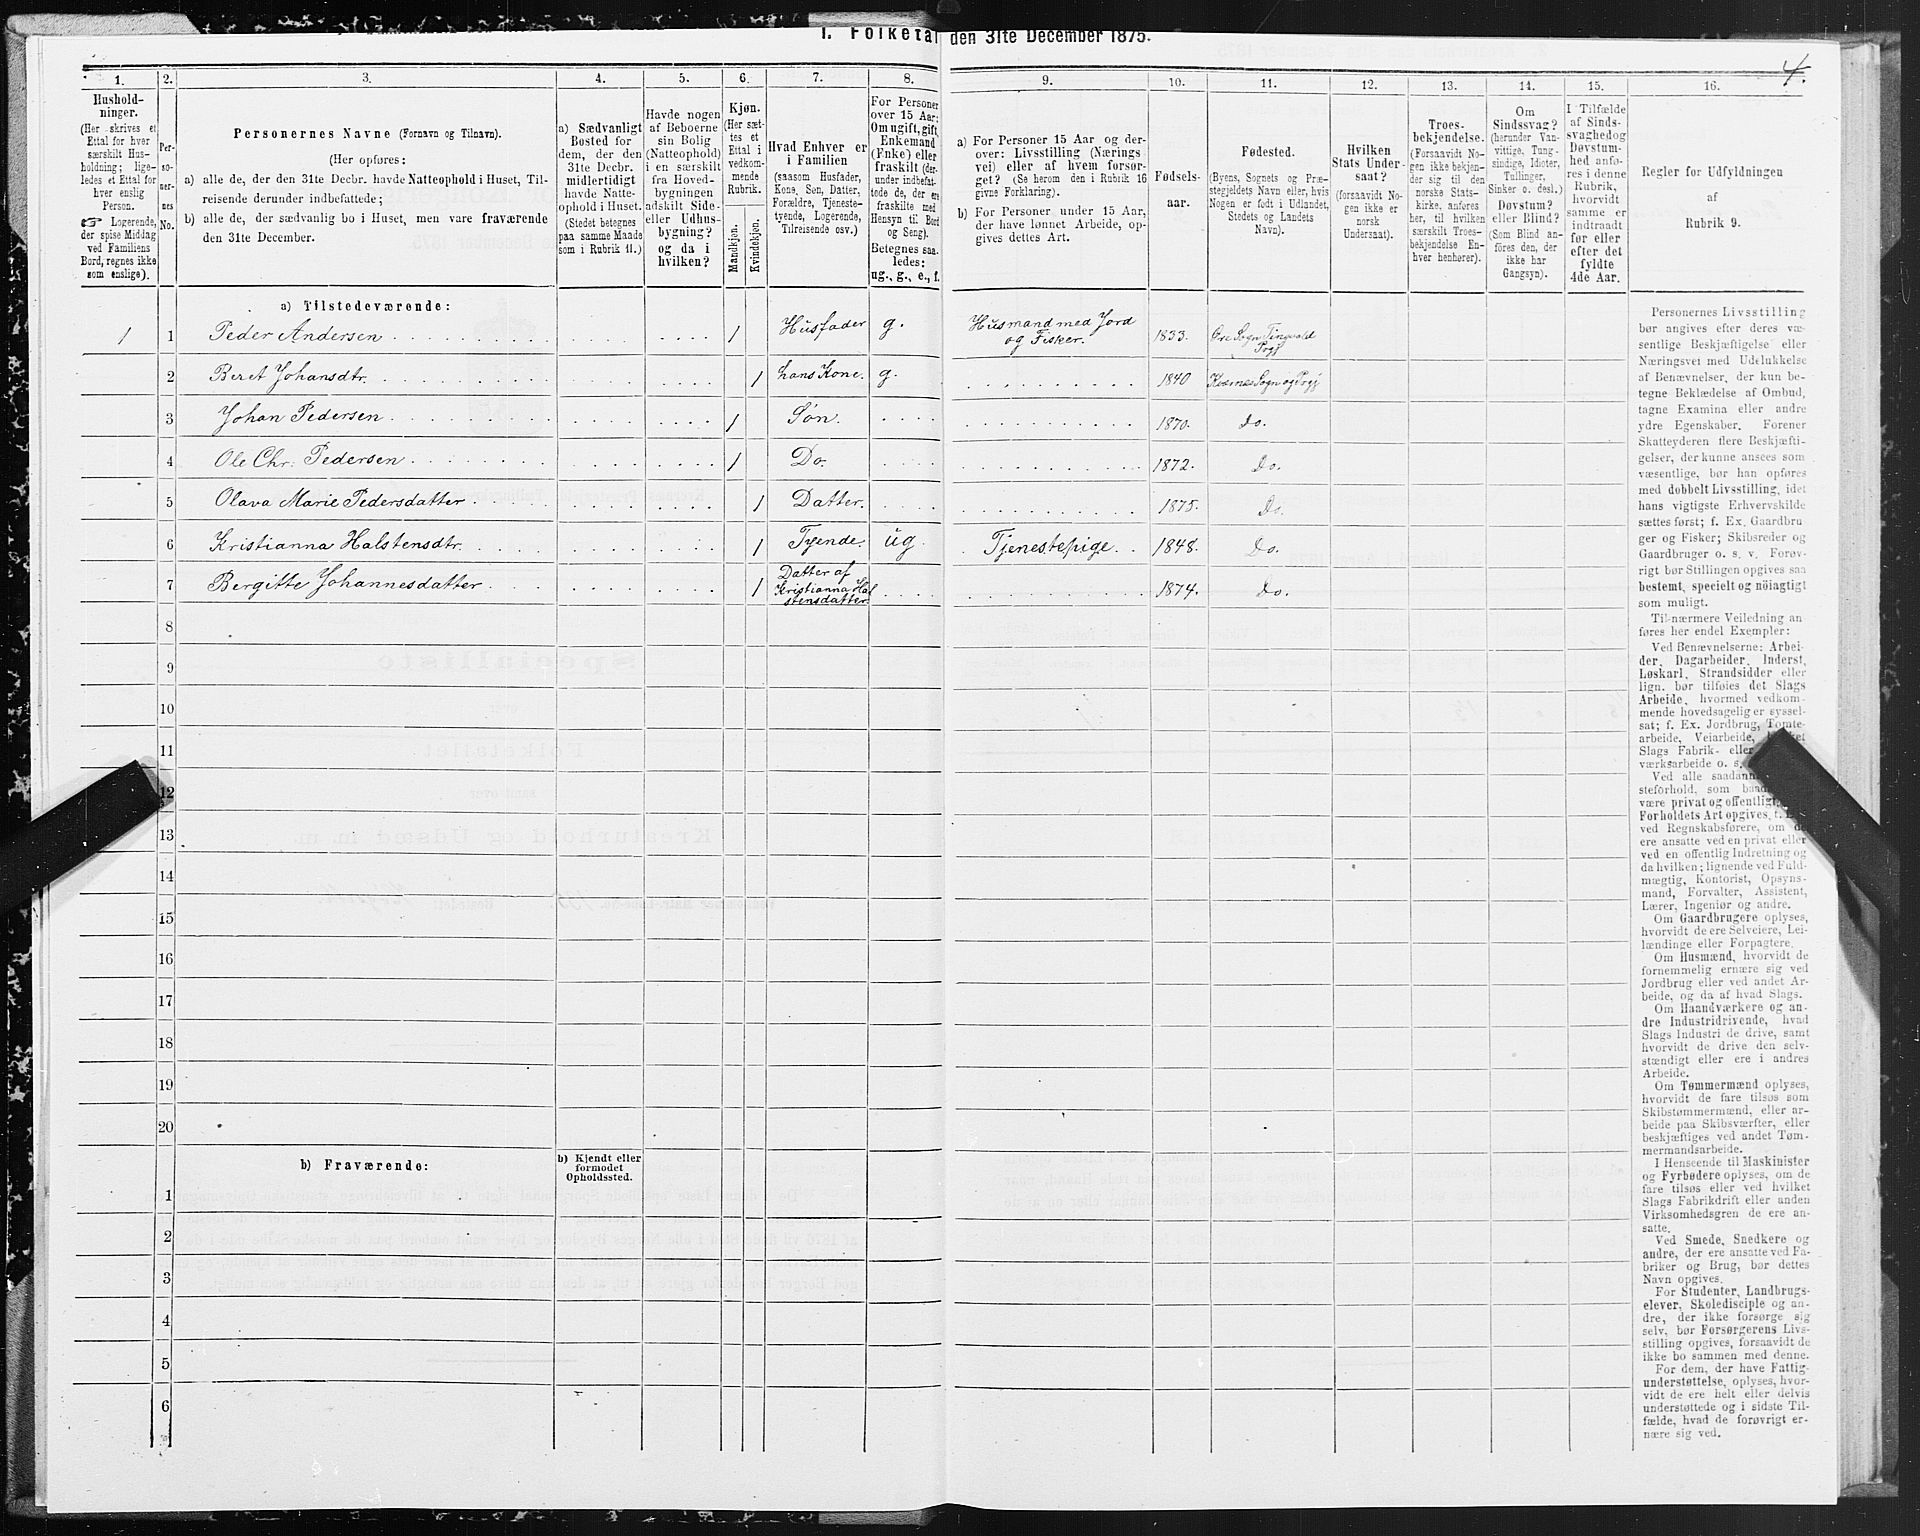 I. Folketal den 31te December 1875.
4.
1.
Hushold-
ninger.
(Her skrives et
Ettal for hver
særskilt Hus-
holdning; lige-
ledes et Ettal for
hver enslig
Person.
☞ Logerende,
der spise Middag
ved Familiens
Bord, regnes ikke
som enslige).
2.
Per-
so-
ner-
nes
No.
3.
Personernes Navne (Fornavn og Tilnavn).
(Her opføres:
a) alle de, der den 31te Decbr. havde Natteophold i Huset, Til-
reisende derunder indbefattede;
b) alle de, der sædvanlig bo i Huset, men vare fraværende
den 31te December.
4.
a) Sædvanligt
Bosted for
dem, der den
31te Decbr.
midlertidigt
havde Natte-
ophold i Huset.
(Stedet betegnes
paa samme Maade
som i Rubrik 11.)
5.
Havde nogen
af Beboerne
sin Bolig
(Natteophold)
i en særskilt
fra Hoved-
bygningen
adskilt Side-
eller Udhus-
bygning?
og da i
hvilken?
6.
Kjøn.
(Her sæt-
tes et
Ettal i
vedkom-
mende
Rubrik.
Mandkjøn.
Kvindekjøn.
7.
Hvad Enhver er
i Familien
(saasom Husfader,
Kone, Søn, Datter,
Forældre, Tjeneste-
tyende, Logerende,
Tilreisende osv.)
8.
For Personer
over 15 Aar:
Om ugift, gift,
Enkemand
(Enke) eller
fraskilt (der-
under indbefat-
tede de, der ere
fraskilte med
Hensyn til Bord
og Seng).
Betegnes saa-
ledes:
ug., g., e., f.
9.
a) For Personer 15 Aar og der-
over: Livsstilling (Nærings
vei) eller af hvem forsør-
get? (Se herom den i Rubrik 16
givne Forklaring).
b) For Personer under 15 Aar,
der have lønnet Arbeide, op-
gives dettes Art.
10.
Fødsels-
aar.
11.
Fødested.
(Byens, Sognets og Præ-
stegjeldets Navn eller, hvis
Nogen er født i Udlandet,
Stedets og Landets
Navn).
12.
Hvilken
Stats Under-
saat?
(forsaavidt No-
gen ikke er
norsk
Undersaat).
13.
Troes-
bekjendelse.
(Forsaavidt No-
gen ikke bekjen-
der sig til den
norske Stats-
kirke, anføres
her, til hvilken
særskilt Troes-
bekjendelse En-
hver henhører).
14.
Om
Sindssvag?
(herunder Van-
vittige, Tung-
sindige, Idioter,
Tullinger,
Sinker o. desl.)
Døvstum?
eller Blind?
(Som Blind an-
føres den, der
ikke har
Gangsyn).
15.
I Tilfælde
af Sinds-
svaghed og
Døvstum-
hed anfø-
res i denne
Rubrik,
hvorvidt
samme er
indtraadt
før eller
efter det
fyldte
4de Aar.
16.
Regler for Udfyldningen
af
Rubrik 9.
a) Tilstedeværende:
1 1 Peder Andersen 1 Husfader g. Husmand med Jord og Fisker. 1833. Øre Sogn Tingvold Prgj
2 Beret Johansdtr. 1 hans Kone. g. 1840 Kvernes Sogn og Prgj
3 Johan Pedersen 1 Søn. 1870. Do.
4 Ole Chr: Pedersen 1 Do. 1872. Do.
5 Olava Marie Pedersdatter 1 Datter. 1875. Do.
6 Kristianna Halstensdtr. 1 Tyende. ug. Tjenestepige. 1848. Do.
7 Bergitte Johannesdatter 1 Datter af Kristianna Halstensdatter. 1874. Do.
8
9
10
11
12
13
14
15
16
17
18
19
20
b) Fraværende:
b) Kjendt eller
formodet
Opholdssted.
1
2
3
4
5
6
Personernes Livsstilling
bør angives efter deres væ-
sentlige Beskjæftigelse eller
Næringsvei med Udelukkelse
af Benævnelser, der kun be-
tegne Beklædelse af Ombud,
tagne Examina eller andre
ydre Egenskaber. Forener
Skatteyderen flere Beskjæfti-
gelser, der kunne ansees som
væsentlige, bør han opføres
med dobbelt Livsstilling, idet
hans vigtigste Erhvervskilde
sættes først; f. Ex. Gaardbru
ger og Fisker; Skibsreder og
Gaardbruger o. s. v. Forøv-
rigt bør Stillingen opgives saa
bestemt, specielt og nøiagtigt
som muligt.
Til nærmere Veiledning an
føres her endel Exempler:
Ved Benævnelserne: Arbei-
der, Dagarbeider, Inderst,
Løskarl, Strandsidder eller
lign. bør tilføies det Slags
Arbeide, hvormed vedkom-
mende hovedsagelig er syssel-
sat; f. Ex. Jordbrug, Tomte-
arbeide, Veiarbeide,
Slags Fabrik- eller
værksarbeide o. s.
Ved alle saadan
steforhold, som baa
være privat og offentligt,
Forholdets Art opgives, t.
ved Regnskabsførere, om de
ere ansatte ved en privat eller
ved en offentlig Indretning og
da hvilken; lignende ved Fuld-
mægtig, Kontorist, Opsyns-
mand, Forvalter, Assistent,
Lærer, Ingeniør og andre.
Om Gaardbrugere oplyses,
hvorvidt de ere Selveiere, Lei-
lændinge eller Forpagtere.
Om Husmænd, hvorvidt de
fornemmelig ernære sig ved
Jordbrug eller ved andet Ar-
beide, og da af hvad Slags.
Om Haandværkere og an-
dre Industridrivende, hvad
Slags Industri de drive, samt
hvorvidt de drive den selv-
stændigt eller ere i andres
Arbeide.
Om Tømmermænd oplyses,
hvorvidt de fare tilsøs som
Skibstømmermænd, eller ar-
beide paa Skibsværfter, eller
beskjæftiges ved andet Tøm-
mermandsarbeide.
I Henseende til Maskinister
og Fyrbødere oplyses, om de
fare tilsøs eller ved hvilket
Slags Fabrikdrift eller anden
Virksomhedsgren de ere an-
satte.
Ved Smede, Snedkere og
andre, der ere ansatte ved Fa-
briker og Brug, bør dettes
Navn opgives.
For Studenter, Landbrugs-
elever, Skoledisciple og an-
dre, der ikke forsørge sig
selv, bør Forsørgerens Livs-
stilling opgives, forsaavidt de
ikke bo sammen med denne.
For dem, der have Fattig-
understøttelse, oplyses, hvor-
vidt de ere helt eller delvis
understøttede og i sidste Til-
fælde, hvad de forøvrigt er-
nære sig ved.